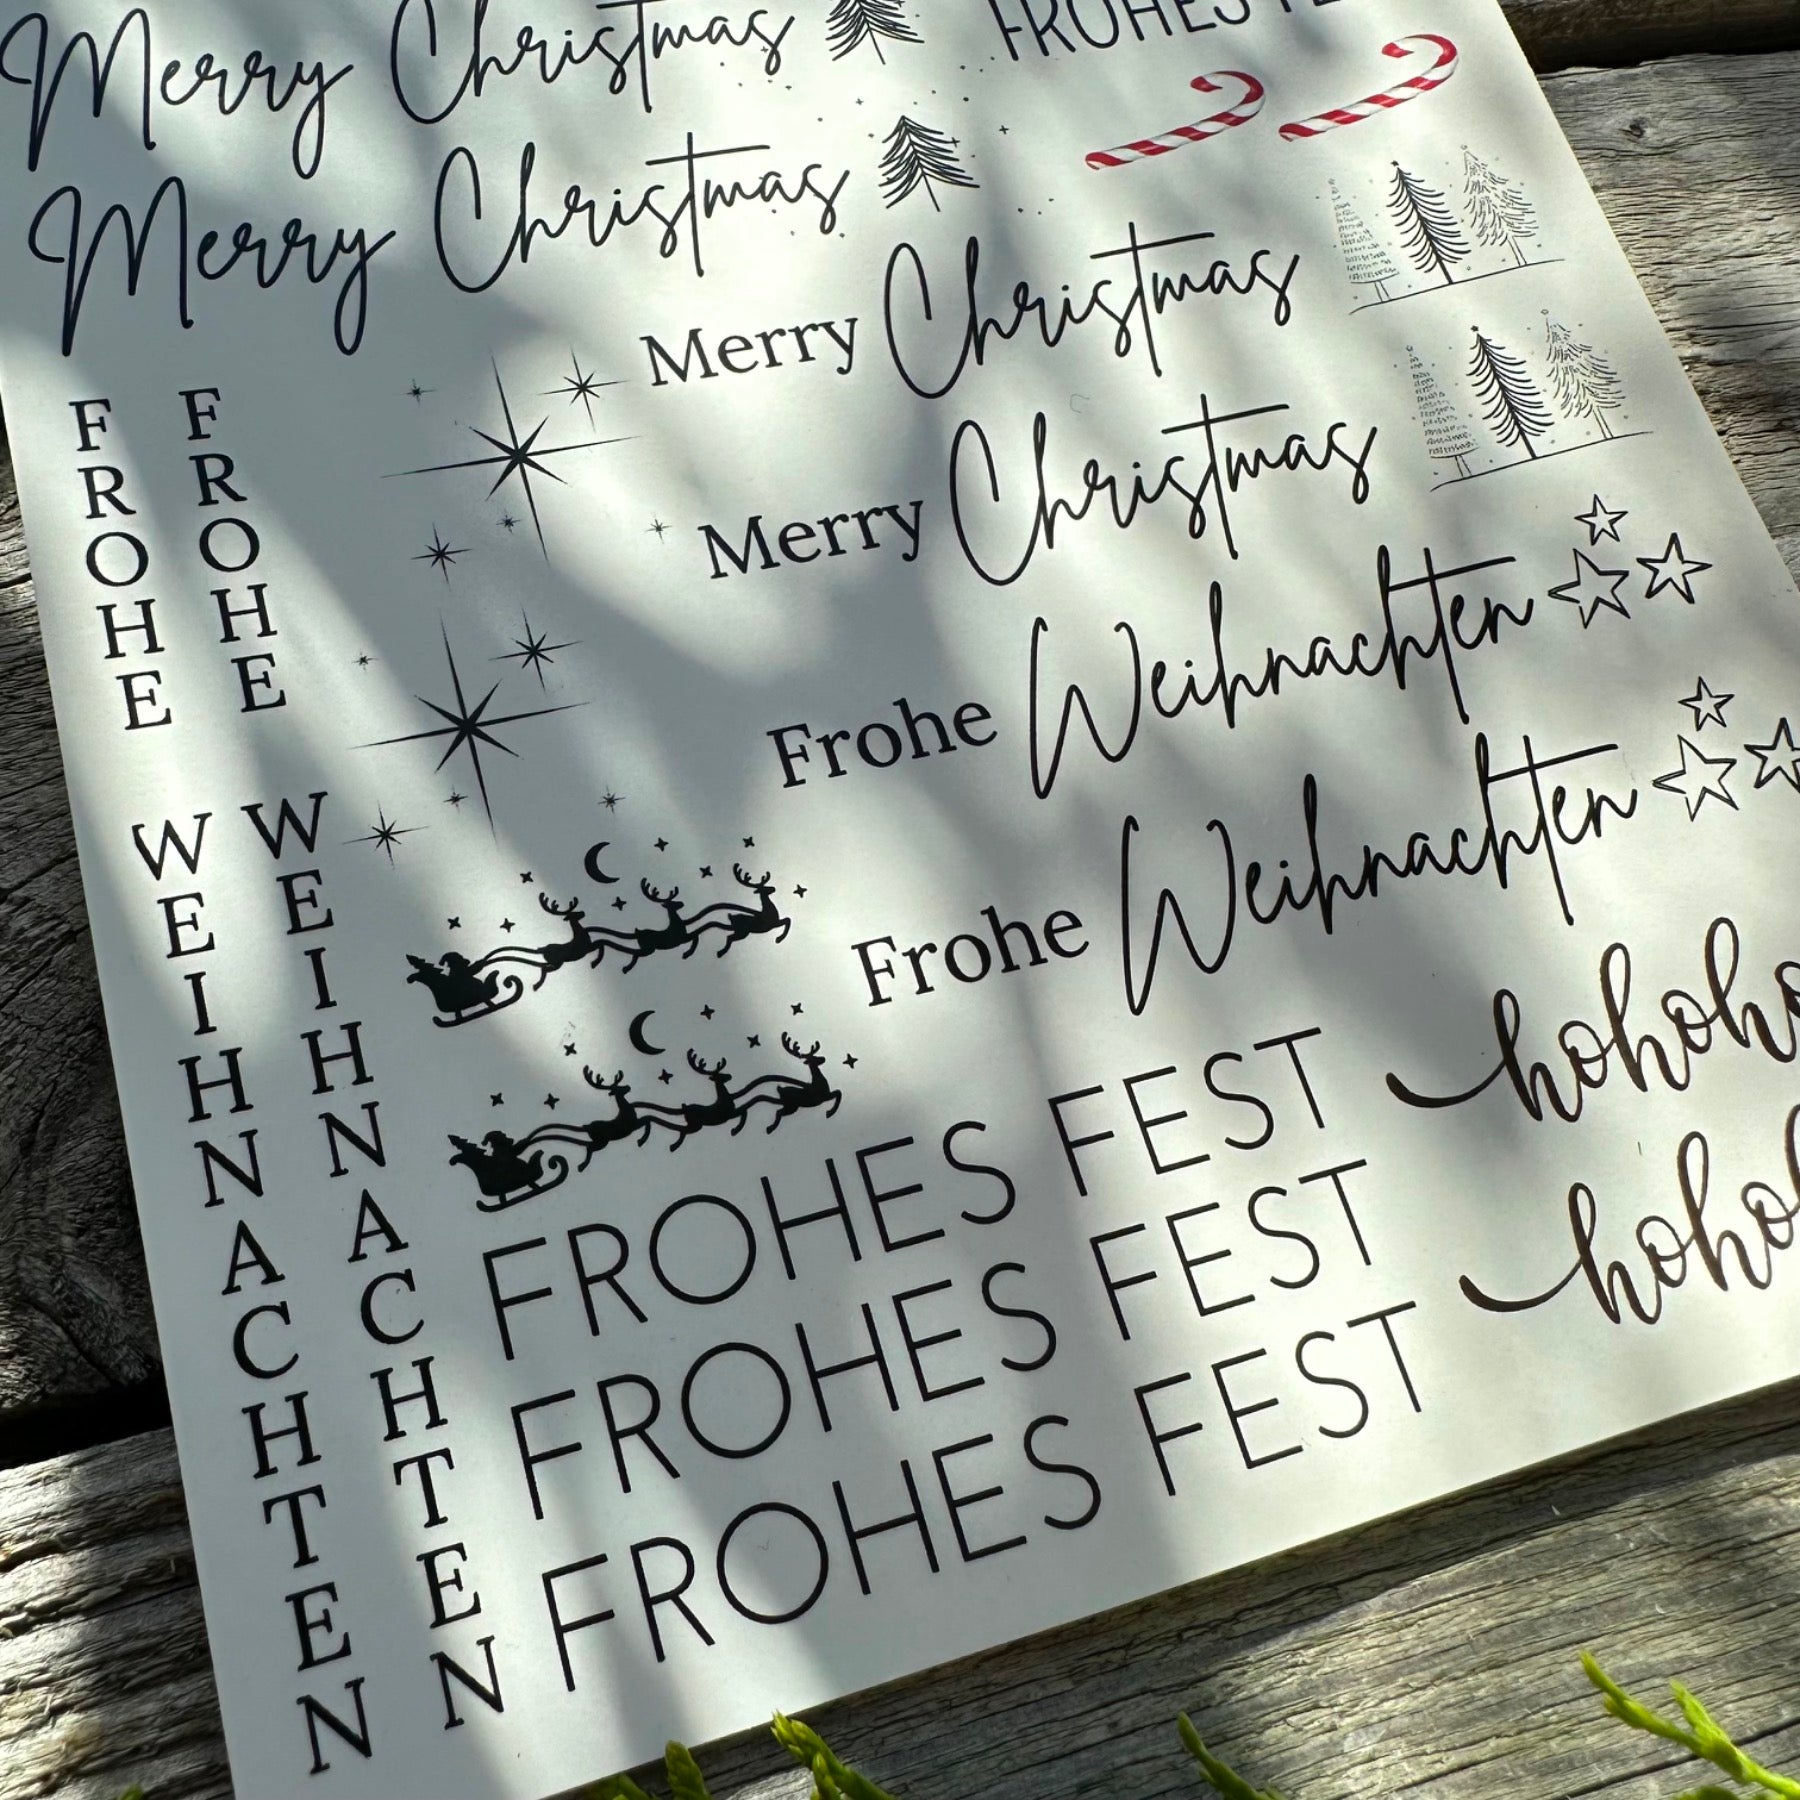 Merry Christmas
FROHES
Merry Christmas
Merry Christmas
Merry Christmas
Frohe Weihnachten
Frohe Weihnachten
FROHE WEIHNACHTEN
FROHE WEIHNACHTEN
FROHES FEST
FROHES FEST
FROHES FEST